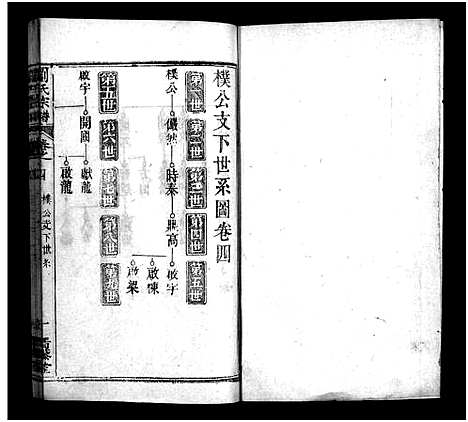 樸公支下世系圖卷四
第一世 第二世 第三世 第四世 第五世
樸公 儼然 時泰 鼎高 啟宇
啟棟
啟梁
第五世 第六世 第七世 第八世 第九世
啟宇 開國 獻龍
啟龍
劉氏宗譜
卷之四
樸公支下世系
一